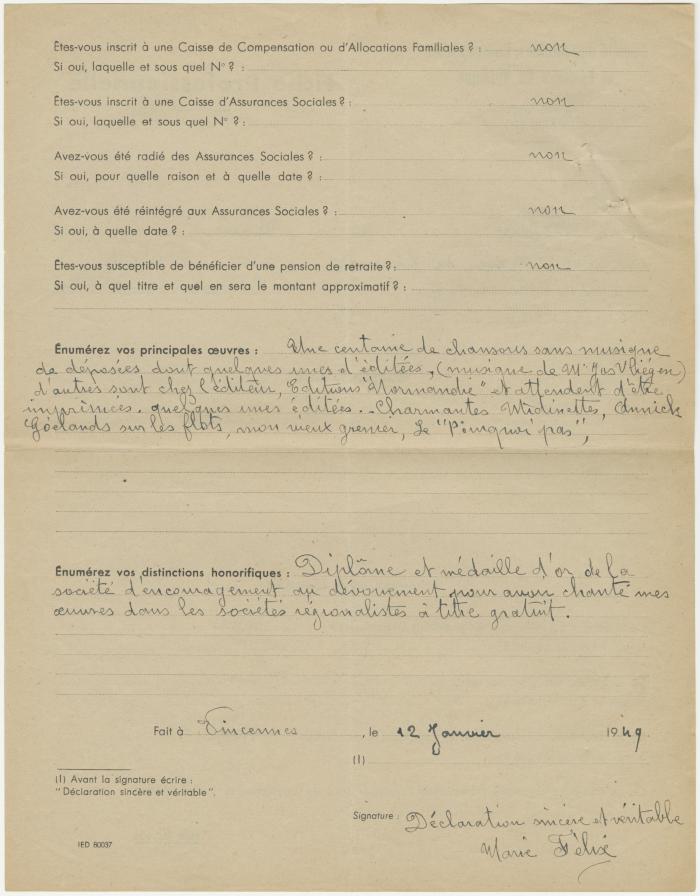 Êtes-vous inscrit à une Caisse de Compensation ou d'Allocations Familiales ? : non
Si oui, laquelle et sous quel N° ? :
Êtes-vous inscrit à une Caisse d'Assurances Sociales ? : non
Si oui, laquelle et sous quel N° ? :
Avez-vous été radié des Assurances Sociales ? : non
Si oui, pour quelle raison et à quelle date ? :
Avez-vous été réintégré aux Assurances Sociales ? : non
Si oui, à quelle date ? :
Êtes-vous susceptible de bénéficier d'une pension de retraite ? : non
Si oui, à quel titre et quel en sera le montant approximatif ? :
Énumérez vos principales œuvres : Une centaine de chansons sans musique
de déposées dont quelques unes d'éditées, (musique de Mr Jos Vliégen)
d'autres sont chez l'éditeur, "Editions Normandie" et attendent d'être
imprimées. quelques unes éditées. Charmantes Midinettes, Annick
Goëlands sur les flots, mon vieux grenier, Le "Pourquoi pas",
Énumérez vos distinctions honorifiques : Diplôme et médaille d'or de la
société d'encouragement au dévouement pour avoir chanté mes
œuvres dans les sociétés régionalistes à titre gratuit.
Fait à Vincennes, le 12 Janvier 1949
(1)
(1) Avant la signature écrire :
"Déclaration sincère et véritable".
Signature : Déclaration sincère et véritable
Marie Félix
IED 80037